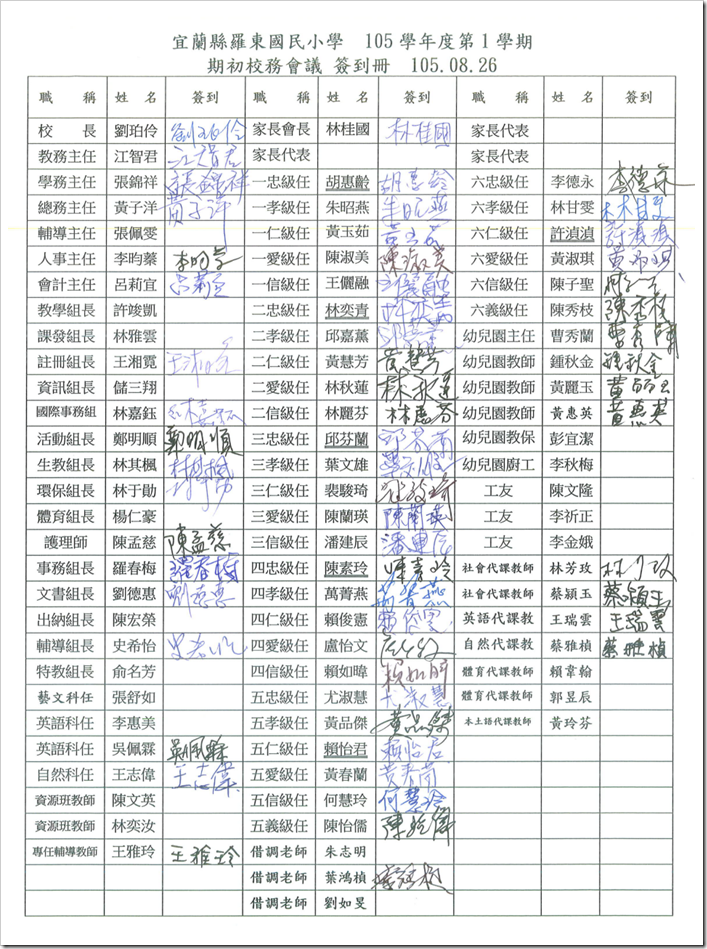 宜蘭縣羅東國民小學　105學年度第1學期
期初校務會議 簽到冊　105.08.26
職稱 姓名 簽到 職稱 姓名 簽到 職稱 姓名 簽到
校長 劉珀伶 劉珀伶 家長會長 林桂國 林桂國 家長代表
教務主任 江智君 江智君 家長代表 家長代表
學務主任 張錦祥 張錦祥 一忠級任 胡惠齡 胡惠齡 六忠級任 李德永 李德永
總務主任 黃子洋 黃子洋 一孝級任 朱昭燕 朱昭燕 六孝級任 林甘雯 林甘雯
輔導主任 張佩雯 一仁級任 黃玉茹 六仁級任 許湞湞 許湞湞
人事主任 李昀蓁 李昀蓁 一愛級任 陳淑美 陳淑美 六愛級任 黃淑琪
會計主任 呂莉宜 呂莉宜 一信級任 王儷融 六信級任 陳子聖
教學組長 許竣凱 二忠級任 林奕青 六義級任 陳秀枝 陳秀枝
課發組長 林雅雲 二孝級任 邱嘉薰 幼兒園主任 曹秀蘭 曹秀蘭
註冊組長 王湘霓 二仁級任 黃慧芳 黃慧芳 幼兒園教師 鍾秋金 鍾秋金
資訊組長 儲三翔 二愛級任 林秋蓮 林秋蓮 幼兒園教師 黃麗玉
國際事務組 林嘉鈺 二信級任 林麗芬 幼兒園教師 黃惠英 黃惠英
活動組長 鄭明順 鄭明順 三忠級任 邱芬蘭 幼兒園教保 彭宜潔
生教組長 林其楓 三孝級任 葉文雄 幼兒園廚工 李秋梅
環保組長 林于勛 三仁級任 裴駿琦 工友 陳文隆
體育組長 楊仁豪 三愛級任 陳蘭瑛 陳蘭瑛 工友 李祈正
護理師 陳孟慈 陳孟慈 三信級任 潘建辰 潘建辰 工友 李金娥
事務組長 羅春梅 羅春梅 四忠級任 陳素玲 社會代課教師 林芳玫
文書組長 劉德惠 劉德惠 四孝級任 萬菁燕 社會代課教師 蔡穎玉 蔡穎玉
出納組長 陳宏榮 四仁級任 賴俊憲 英語代課教 王瑞雲 王瑞雲
輔導組長 史希怡 四愛級任 盧怡文 自然代課教 蔡雅楨 蔡雅楨
特教組長 俞名芳 四信級任 賴如暐 體育代課教師 賴韋翰
藝文科任 張舒如 五忠級任 尤淑慧 體育代課教師 郭昱辰
英語科任 李惠美 五孝級任 黃品傑 黃品傑 本土語代課教師 黃玲芬
英語科任 吳佩霖 五仁級任 賴怡君 賴怡君
自然科任 王志偉 王志偉 五愛級任 黃春蘭
資源班教師 陳文英 五信級任 何慧玲 何慧玲
資源班教師 林奕汝 五義級任 陳怡儒
專任輔導教師 王雅玲 王雅玲 借調老師 朱志明
借調老師 葉鴻楨
借調老師 劉如旻